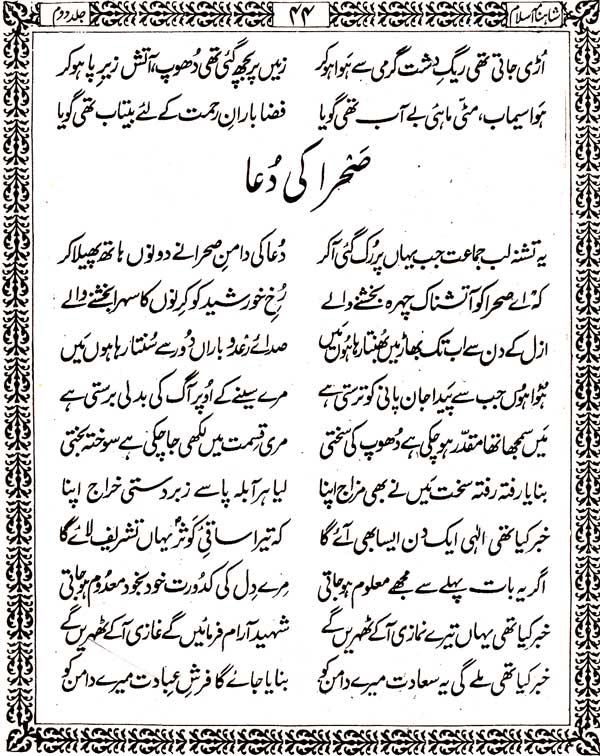 شاہنامہ اسلام ۴۴ جلد دوم
اُڑی جاتی تھی ریگِ دشت گرمی سے ہوا ہو کر زمیں پر بچھ گئی تھی دُھوپ، آتش زیرِ پا ہو کر
ہوا سیماب، مٹی ماہئ بے آب تھی گویا فضا بارانِ رحمت کے لئے بیتاب تھی گویا
صَحْرا کی دُعا
یہ تشنہ لب جماعت جب یہاں پر رُک گئی آ کر دُعا کی دامنِ صحرا نے دونوں ہاتھ پھیلا کر
کہ اے صحرا کو آتشناک چہرہ بخشنے والے رُخِ خورشید کو کرنوں کا سہرا بخشنے والے
ازل کے دن سے اب تک بھاڑ میں بُھنتا رہا ہوں مَیں صدائے رعد و باراں دُور سے سُنتا رہا ہوں مَیں
ہُوا ہوں جب سے پَیدا جان پانی کو ترستی ہے مرے سینے کے اُوپر آگ کی بدلی برستی ہے
مَیں سمجھا تھا مقدّر ہو چکی ہے دُھوپ کی سختی مری قسمت میں لکھی جا چکی ہے سوختہ بختی
بنایا رفتہ رفتہ سخت مَیں نے بھی مزاج اپنا لیا ہر آبلہ پا سے زبردستی خراج اپنا
خبر کیا تھی الٰہی ایک دن ایسا بھی آئے گا کہ تیرا ساقئ کوثرؐ یہاں تشریف لائے گا
اگر یہ بات پہلے سے مجھے معلوم ہو جاتی مرے دِل کی کدُورت خود بخود معدُوم ہو جاتی
خبر کیا تھی یہاں تیرے نمازی آ کے ٹھہریں گے شہید آرام فرمائیں گے غازی آ کے ٹھہریں گے
خبر کیا تھی ملے گی یہ سعادت میرے دامن کو بنایا جائے گا فرشِ عبادت میرے دامن کو